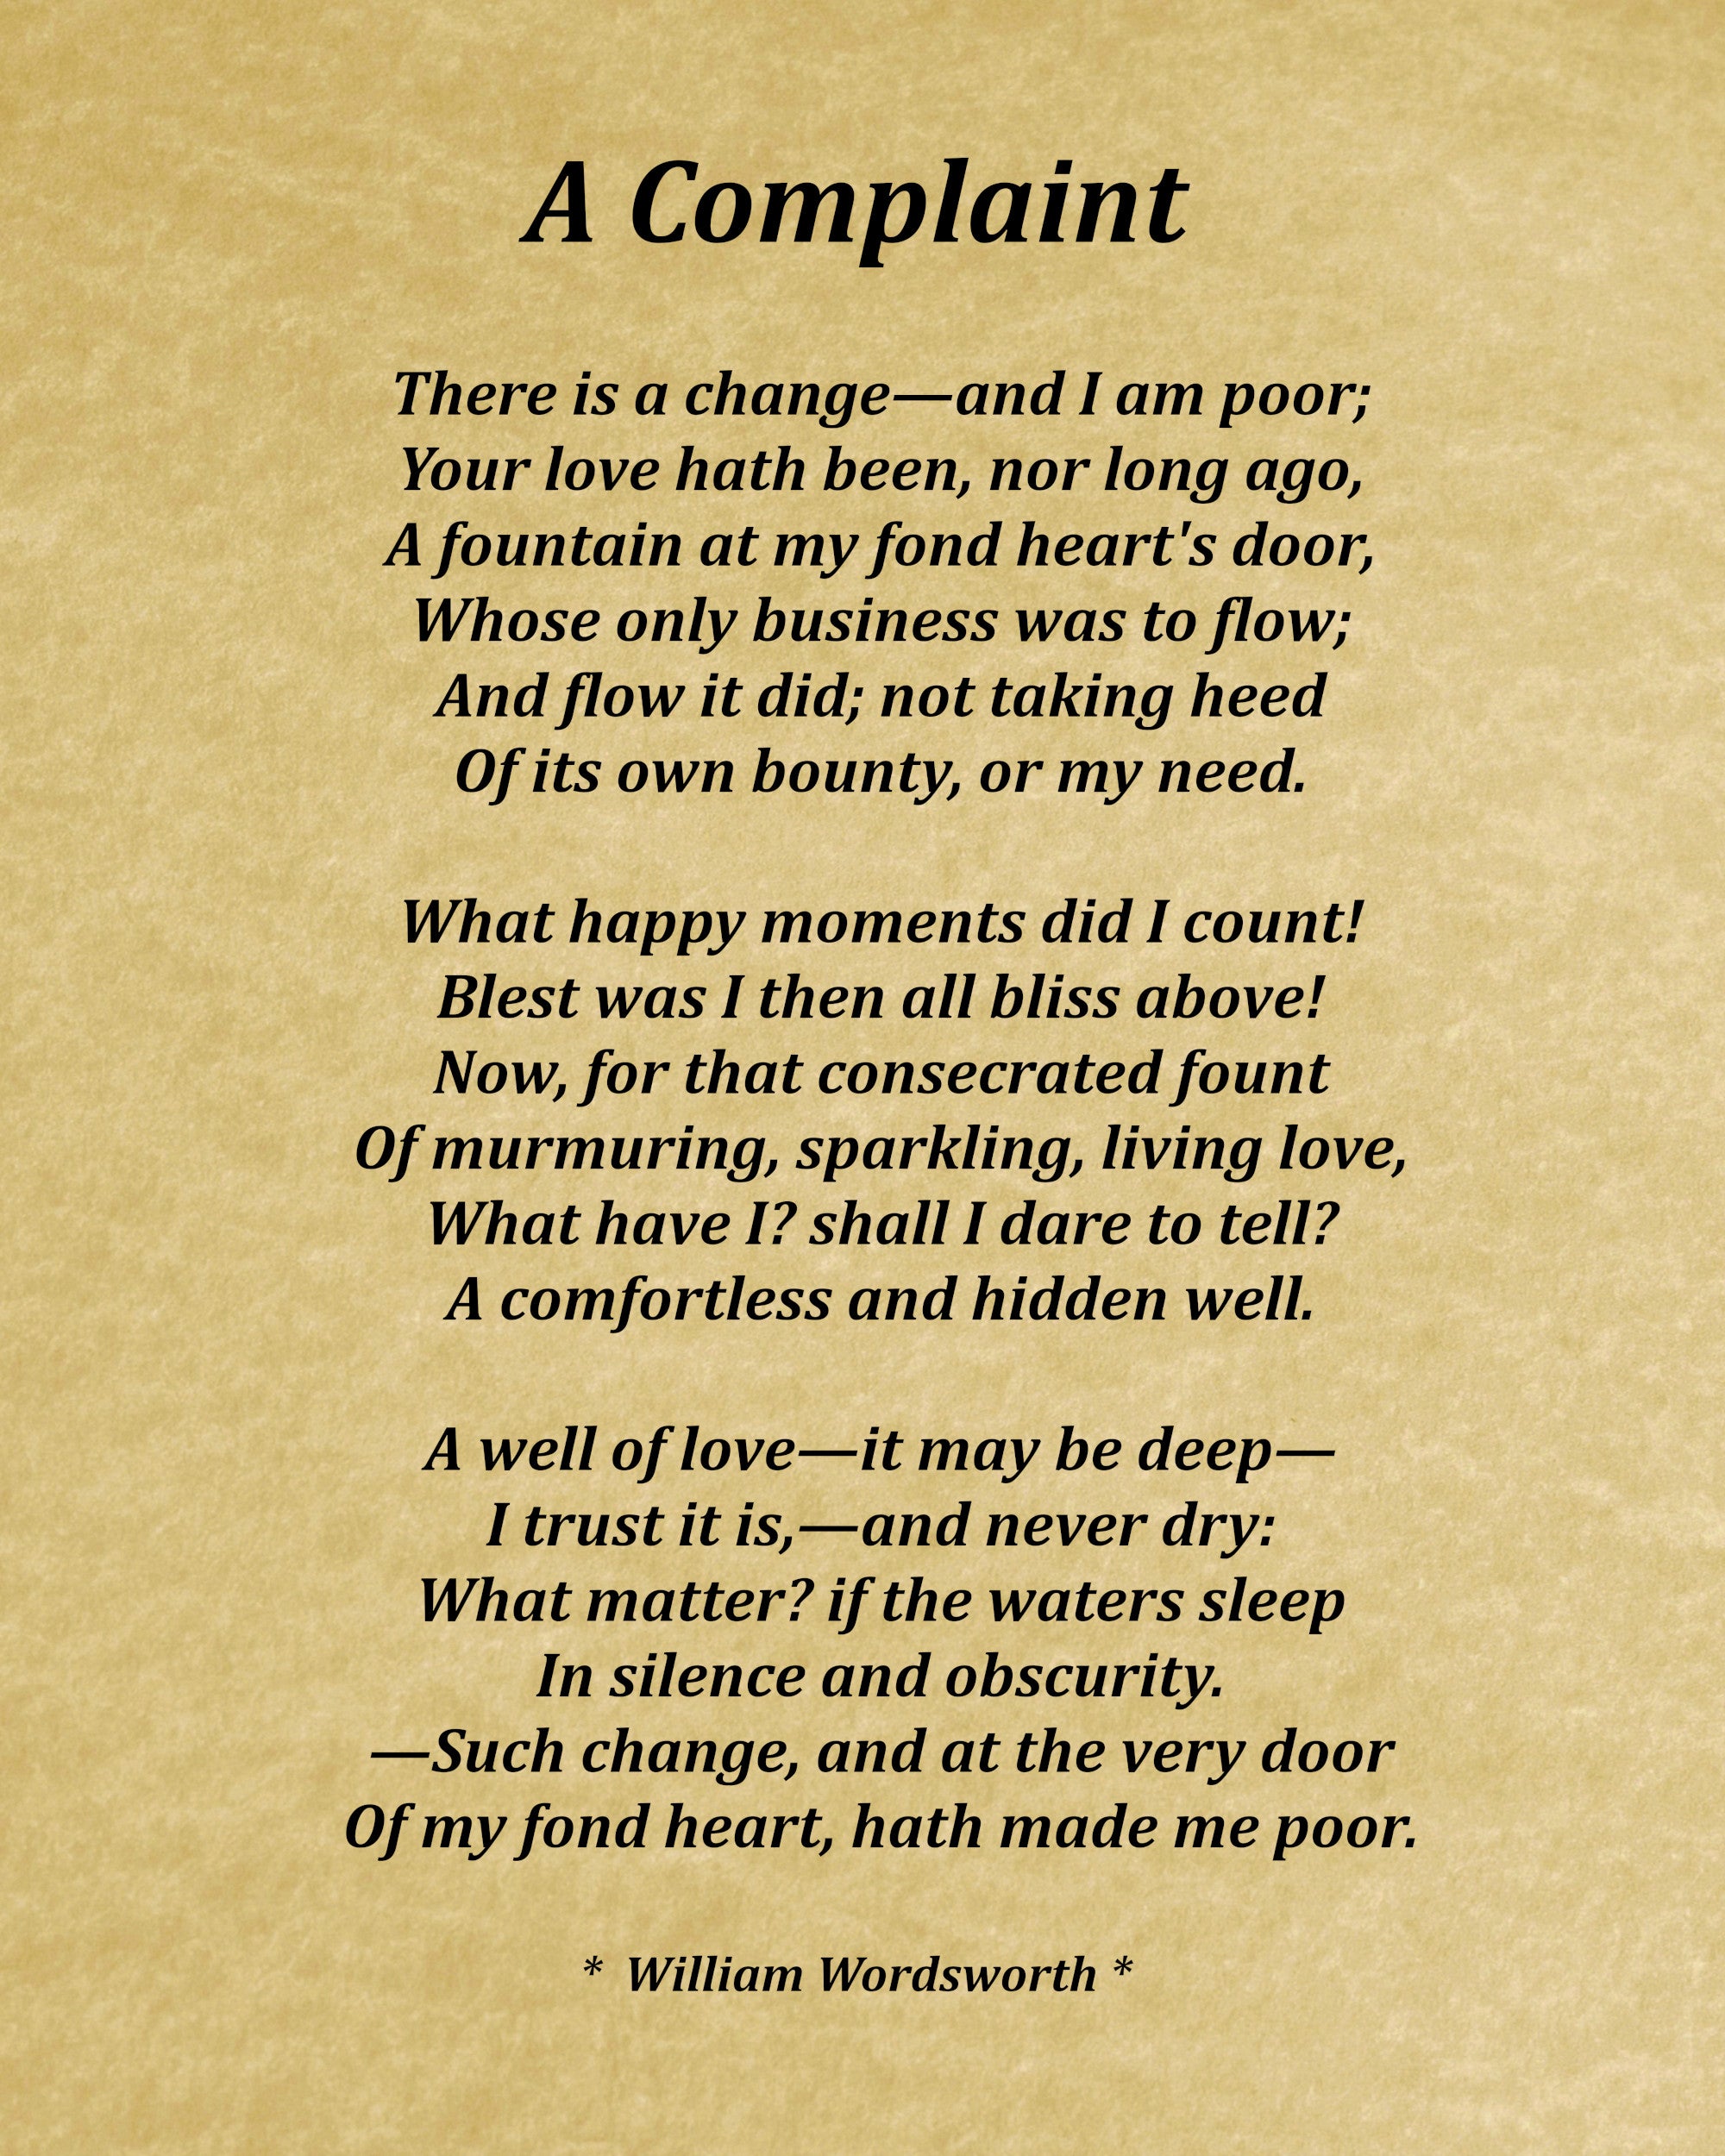 A Complaint
There is a change—and I am poor;
Your love hath been, nor long ago,
A fountain at my fond heart's door,
Whose only business was to flow;
And flow it did; not taking heed
Of its own bounty, or my need.
What happy moments did I count!
Blest was I then all bliss above!
Now, for that consecrated fount
Of murmuring, sparkling, living love,
What have I? shall I dare to tell?
A comfortless and hidden well.
A well of love—it may be deep—
I trust it is,—and never dry:
What matter? if the waters sleep
In silence and obscurity.
—Such change, and at the very door
Of my fond heart, hath made me poor.
* William Wordsworth *